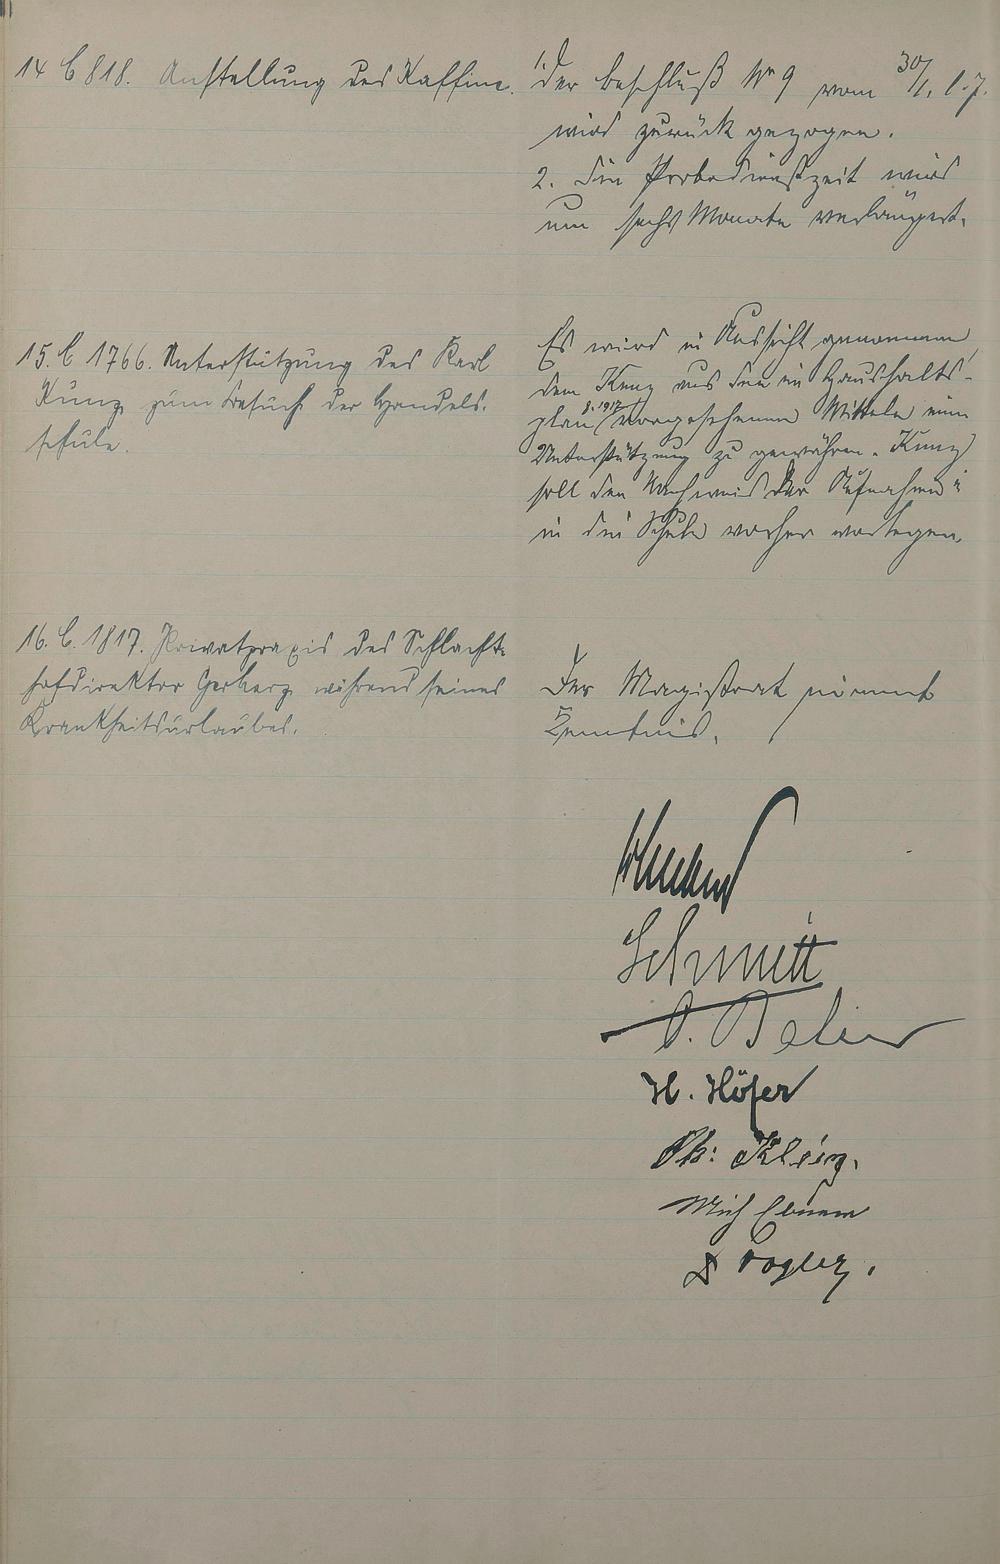 14 C 818. Anstellung des Kaffine.
1. Der Beschluß Nr 9 vom 30/1. l. J.
wird zurück gezogen.
2. Die Probedienstzeit wird
um sechs Monate verlängert.
15. C 1766. Unterstützung des Karl
Kunz zum Besuch der Handels-
schule.
Es wird in Aussicht genommen,
dem Kunz aus den im Haushalts-
plan 1917 vorgesehenen Mitteln eine
Unterstützung zu gewähren. Kunz
soll den Nachweis der Aufnahme
in die Schule vorher vorlegen.
16. C. 1817. Privatpraxis des Schlacht-
hofdirektor Gerberz während seines
Krankheitsurlaubes.
Der Magistrat nimmt
Kenntnis.
Schmitt
H. Höfer
Ph: Klein.
Mich
Vogler.